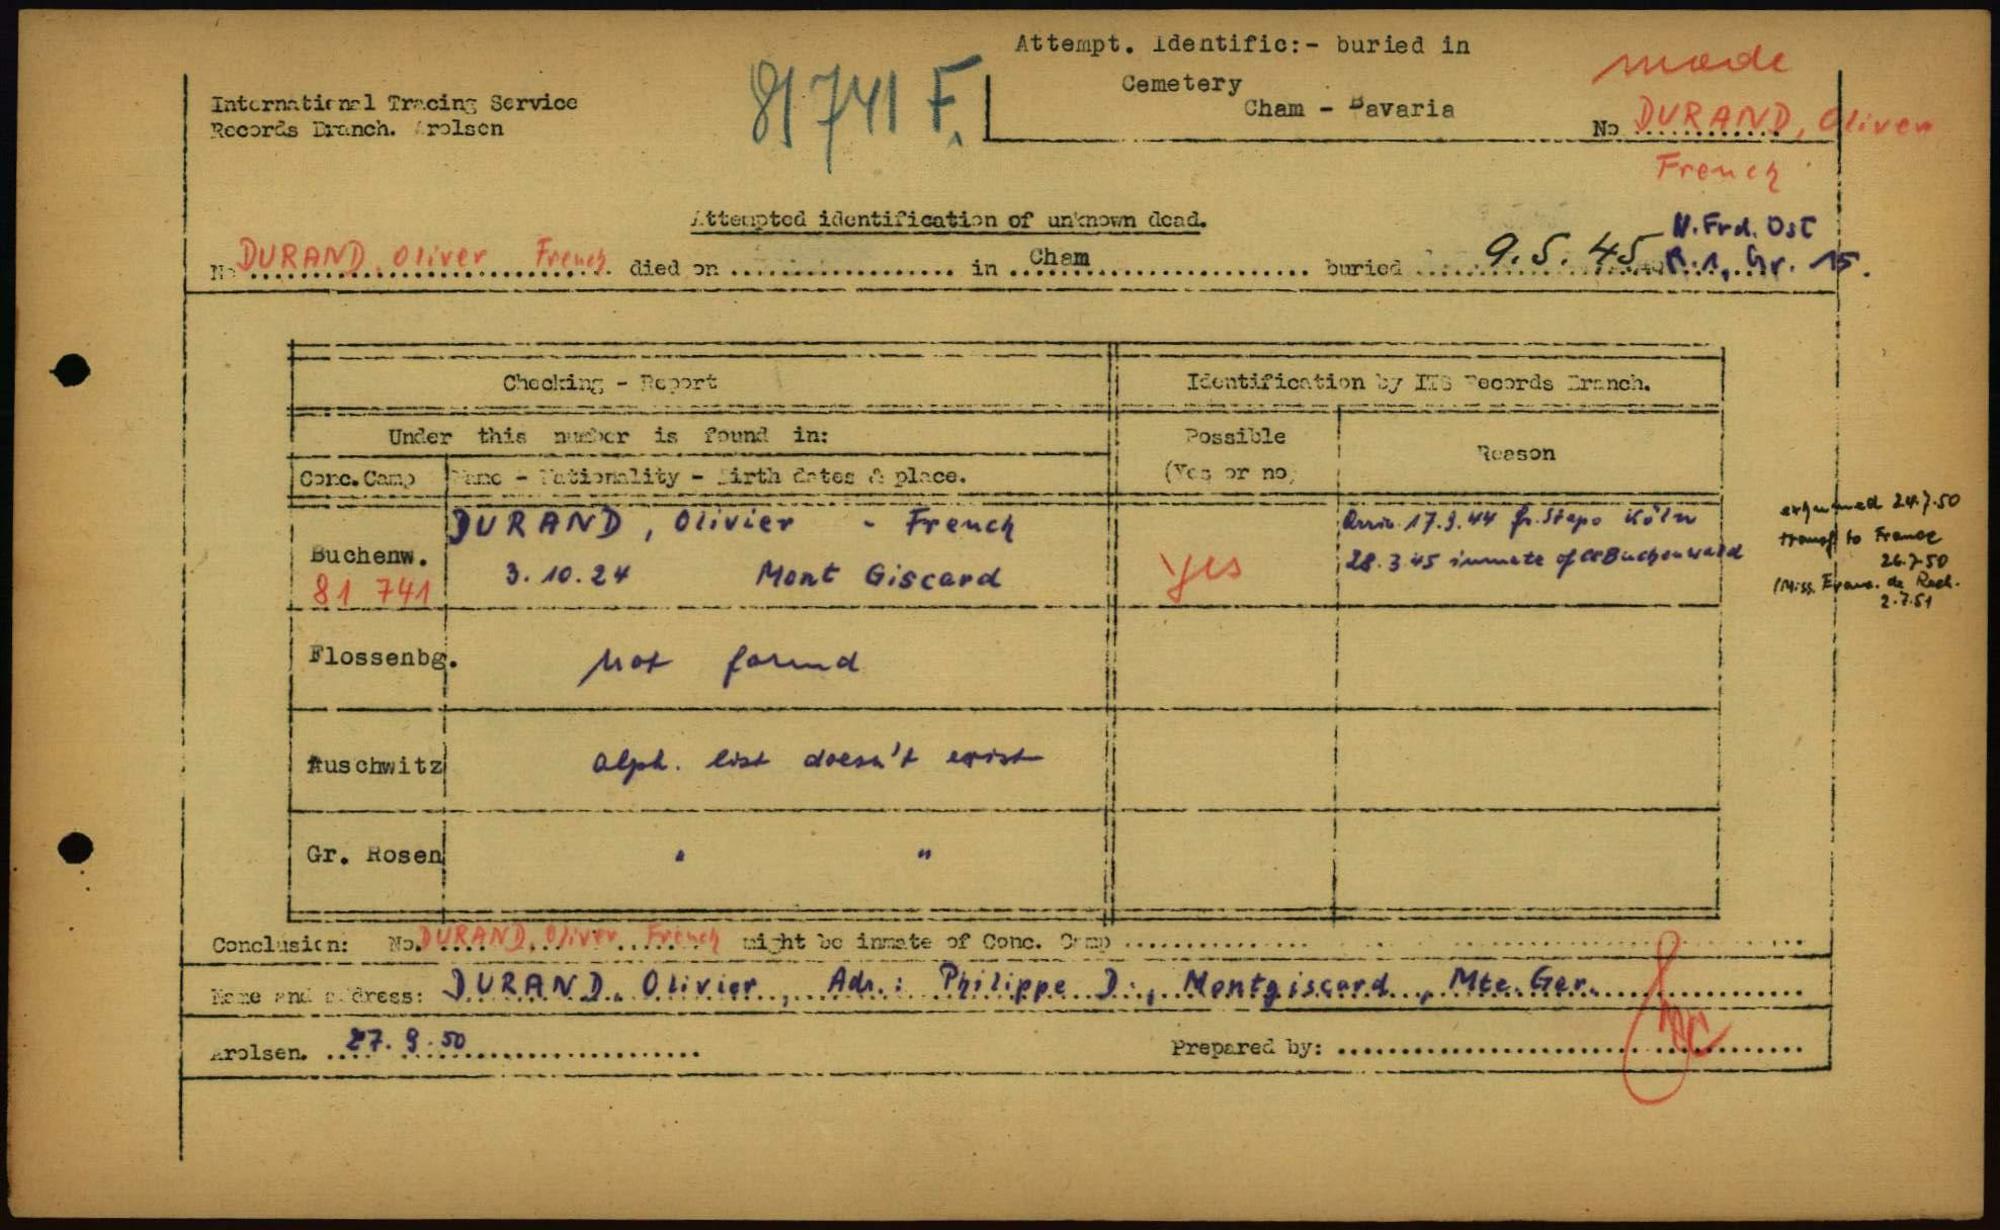 Attempt. Identific:- buried in
Cemetery
Cham - Bavaria
made
International Tracing Service
Records Branch. Arolsen
81741 F.
No DURAND, Oliver
French
Attempted identification of unknown dead.
No DURAND, Oliver French died on .......... in Cham .......... buried 9.5.45 N.Frd. Ost
R.1, Gr. 15.
Checking - Report
Identification by ITS Records Branch.
Under this number is found in:
Possible
(Yes or no)
Reason
Conc.Camp
Name - Nationality - Birth dates & place.
Buchenw.
81 741
DURAND, Olivier - French
3.10.24 Mont Giscard
yes
Arriv. 17.9.44 fr. Stapo Köln
28.3.45 inmate of CC Buchenwald
exhumed 24.7.50
transf to France
26.7.50
(Miss. Franc. de Rech.
2.7.51
Flossenbg.
not found
Auschwitz
alph. list doesn't exist
Gr. Rosen
" "
Conclusion: No. DURAND, Oliver French might be inmate of Conc. Camp ..........
Name and address: DURAND, Olivier, Adr.: Philippe D., Montgiscard, Hte. Gar.
Arolsen. 27.9.50
Prepared by: ..........